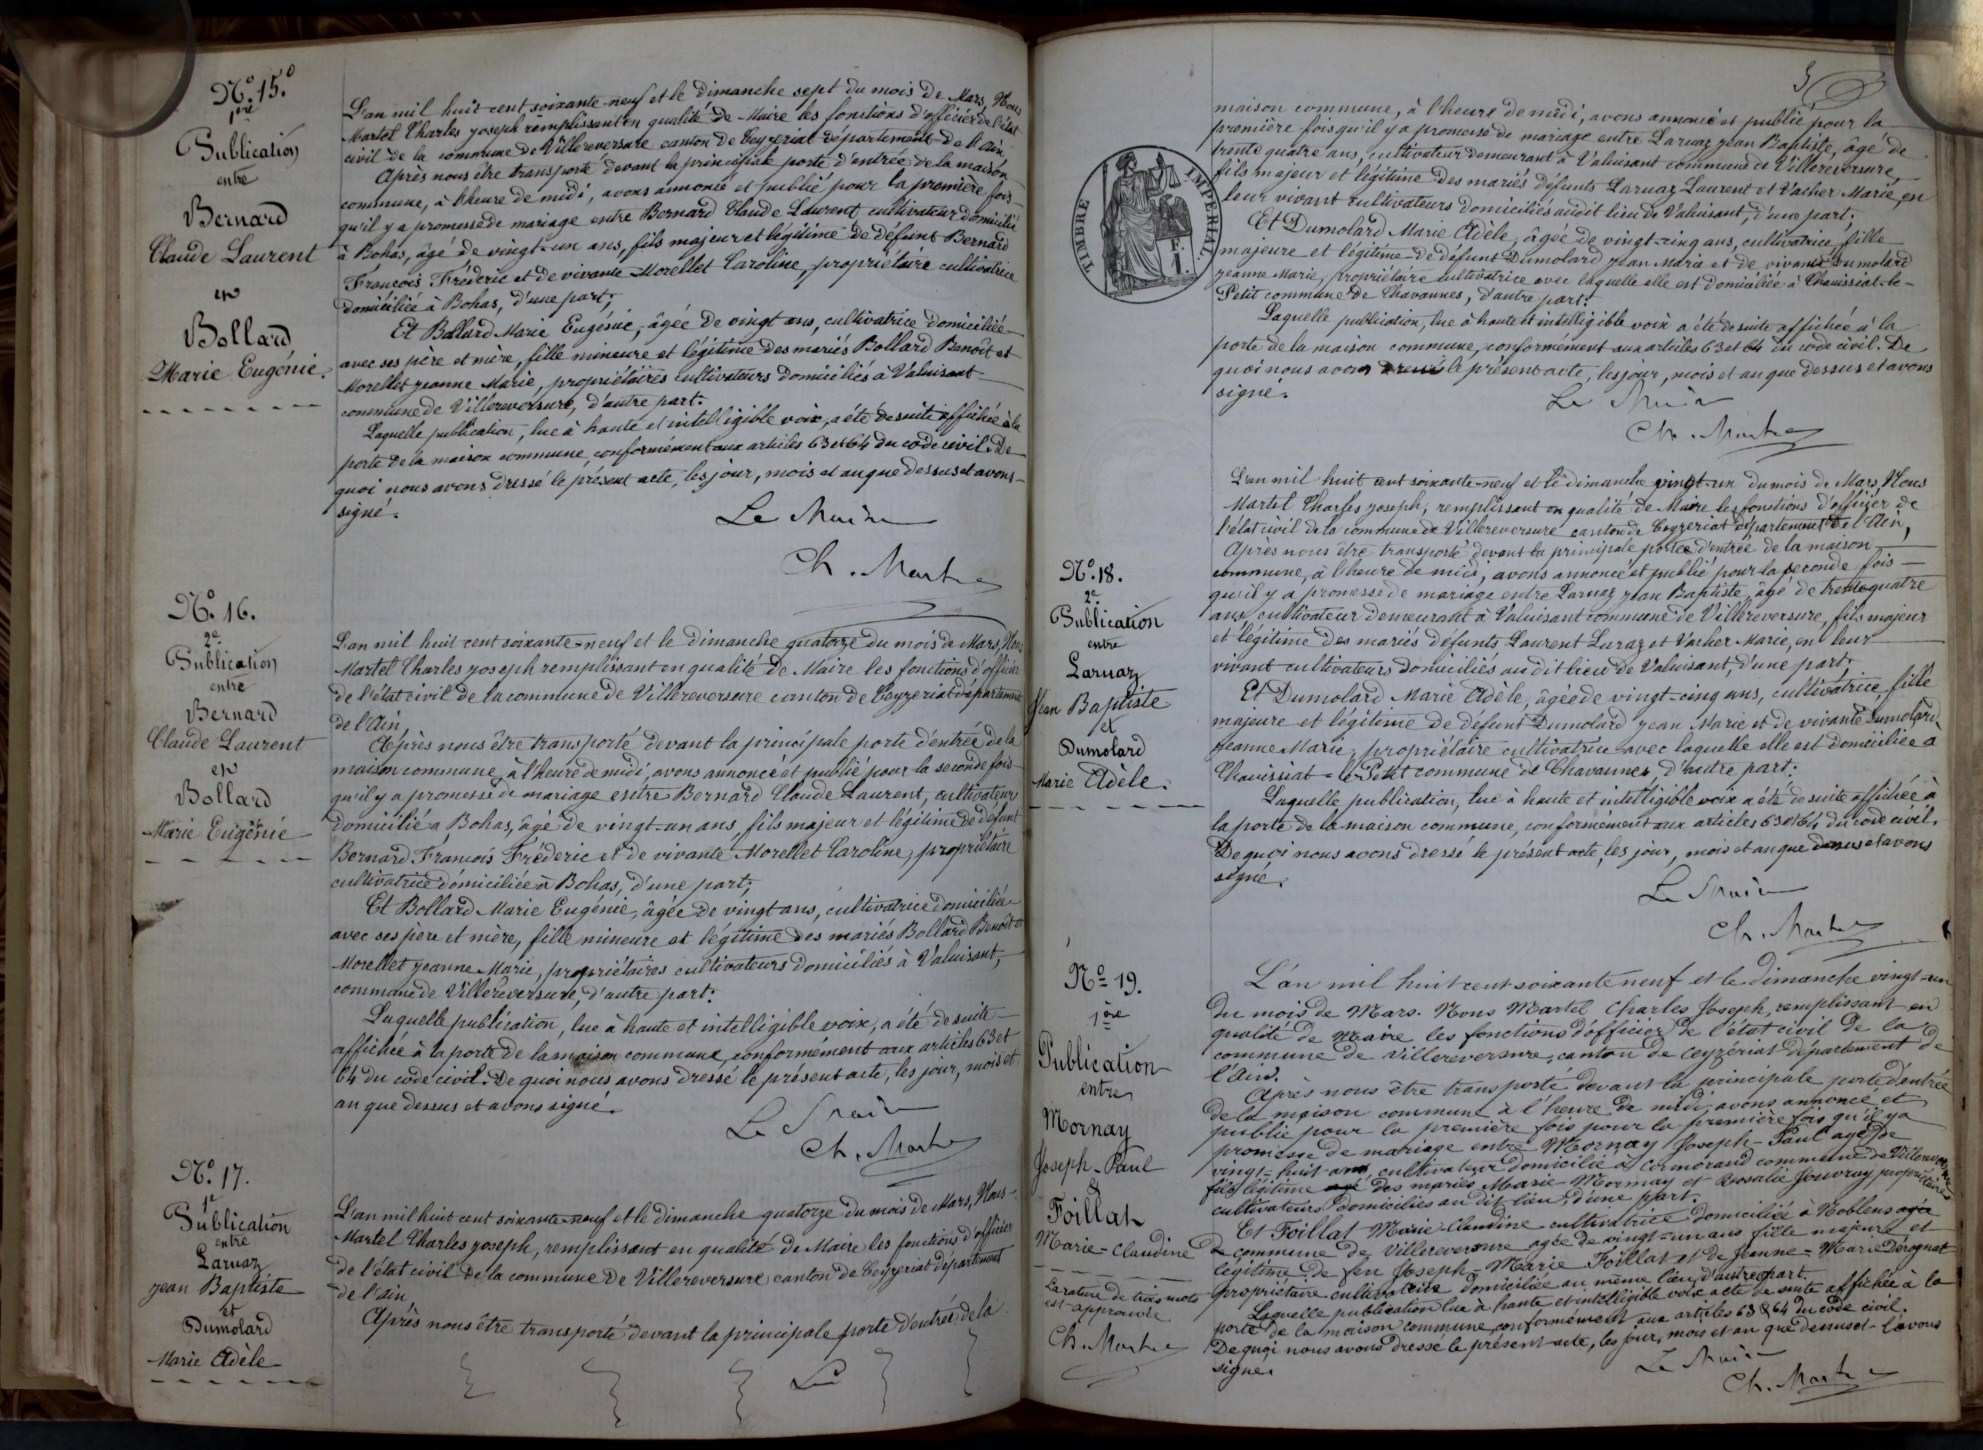 N.º 15.º
1ère
Publication
entre
Bernard
Claude Laurent
et
Bollard
Marie Eugénie.
L'an mil huit cent soixante-neuf et le dimanche sept du mois de Mars, Nous
Martel Charles Joseph remplissant en qualité de Maire les fonctions d'officier de l'état
civil de la commune de Villereversure canton de Ceyzeriat département de l'Ain
Après nous être transporté devant la principale porte d'entrée de la maison
commune, à l'heure de midi, avons annoncé et publié pour la première fois
qu'il y a promesse de mariage entre Bernard Claude Laurent cultivateur domicilié
à Bohas, âgé de vingt-un ans, fils majeur et légitime de défunt Bernard
François Fréderic et de vivante Morellet Caroline, propriétaire cultivatrice
domiciliée à Bohas, d'une part;
Et Bollard Marie Eugénie, âgée de vingt ans, cultivatrice domiciliée
avec ses père et mère, fille mineure et légitime des mariés Bollard Benoît et
Morellet Jeanne Marie, propriétaires cultivateurs domiciliés à Valuisant
commune de Villereversure, d'autre part.
Laquelle publication, lue à haute et intelligible voix, a été de suite affichée à la
porte de la maison commune, conformément aux articles 63 et 64 du code civil. De
quoi nous avons dressé le présent acte, les jour, mois et an que dessus et avons
signé.
Le Maire
Ch. Martel
N.º 16.
2e
Publication
entre
Bernard
Claude Laurent
et
Bollard
Marie Eugénie
L'an mil huit cent soixante-neuf et le dimanche quatorze du mois de Mars, Nous
Martel Charles Joseph remplissant en qualité de Maire les fonctions d'officier
de l'état civil de la commune de Villereversure canton de Ceyzeriat département
de l'Ain
Après nous être transporté devant la principale porte d'entrée de la
maison commune, à l'heure de midi, avons annoncé et publié pour la seconde fois
qu'il y a promesse de mariage entre Bernard Claude Laurent, cultivateur
domicilié à Bohas, âgé de vingt-un ans, fils majeur et légitime de défunt
Bernard François Fréderic et de vivante Morellet Caroline, propriétaire
cultivatrice domiciliée à Bohas, d'une part;
Et Bollard Marie Eugénie, âgée de vingt ans, cultivatrice domiciliée
avec ses père et mère, fille mineure et légitime des mariés Bollard Benoît et
Morellet Jeanne Marie, propriétaires cultivateurs domiciliés à Valuisant,
commune de Villereversure, d'autre part.
Laquelle publication, lue à haute et intelligible voix, a été de suite
affichée à la porte de la maison commune, conformément aux articles 63 et
64 du code civil. De quoi nous avons dressé le présent acte, les jour, mois et
an que dessus et avons signé.
Le Maire
Ch. Martel
N.º 17.
1e
Publication
entre
Laruaz
Jean Baptiste
et
Dumolard
Marie Adèle
L'an mil huit cent soixante-neuf et le dimanche quatorze du mois de Mars, Nous
Martel Charles Joseph, remplissant en qualité de Maire les fonctions d'officier
de l'état civil de la commune de Villereversure canton de Ceyzeriat département
de l'Ain
Après nous être transporté devant la principale porte d'entrée de la
5
TIMBRE IMPÉRIAL
maison commune, à l'heure de midi, avons annoncé et publié pour la
première fois qu'il y a promesse de mariage entre Laruaz Jean Baptiste, âgé de
trente quatre ans, cultivateur demeurant à Valuisant commune de Villereversure,
fils majeur et légitime des mariés défunts Laruaz Laurent et Vacher Marie, en
leur vivant cultivateurs domiciliés audit lieu de Valuisant, d'une part;
Et Dumolard Marie Adèle, âgée de vingt-cinq ans, cultivatrice, fille
majeure et légitime de défunt Dumolard Jean Marie et de vivante Dumolard
Jeanne Marie, propriétaire cultivatrice avec laquelle elle est domiciliée à Chavissiat-le-
Petit commune de Chavannes, d'autre part.
Laquelle publication, lue à haute et intelligible voix a été de suite affichée à la
porte de la maison commune, conformément aux articles 63 et 64 du code civil. De
quoi nous avons dressé le présent acte, les jour, mois et an que dessus et avons
signé.
Le Maire
Ch. Martel
N.º 18.
2e
Publication
entre
Laruaz
Jean Baptiste
et
Dumolard
Marie Adèle.
L'an mil huit cent soixante-neuf et le dimanche vingt-un du mois de Mars, Nous
Martel Charles Joseph, remplissant en qualité de Maire les fonctions d'officier de
l'état civil de la commune de Villereversure canton de Ceyzeriat département de l'Ain,
Après nous être transporté devant la principale porte d'entrée de la maison
commune, à l'heure de midi, avons annoncé et publié pour la seconde fois
qu'il y a promesse de mariage entre Laruaz Jean Baptiste, âgé de trente quatre
ans, cultivateur demeurant à Valuisant commune de Villereversure, fils majeur
et légitime des mariés défunts Laurent Laruaz et Vacher Marie, en leur
vivant cultivateurs domiciliés au dit lieu de Valuisant, d'une part;
Et Dumolard Marie Adèle, âgée de vingt-cinq ans, cultivatrice, fille
majeure et légitime de défunt Dumolard Jean Marie et de vivante Dumolard
Jeanne Marie, propriétaire cultivatrice avec laquelle elle est domiciliée à
Chavissiat-le-Petit commune de Chavannes, d'autre part.
Laquelle publication, lue à haute et intelligible voix a été de suite affichée à
la porte de la maison commune, conformément aux articles 63 et 64 du code civil.
De quoi nous avons dressé le présent acte, les jour, mois et an que dessus et avons
signé.
Le Maire
Ch. Martel
N.º 19.
1ère
Publication
entre
Mornay
Joseph-Paul
&
Foillat
Marie-Claudine
La rature de trois mots
est approuvée
Ch. Martel
L'an mil huit cent soixante neuf et le dimanche vingt-un
du mois de Mars. Nous Martel Charles Joseph, remplissant en
qualité de Maire les fonctions d'officier de l'état civil de la
commune de Villereversure, canton de Ceyzériat département de
l'Ain.
Après nous être transporté devant la principale porte d'entrée
de la maison commune à l'heure de midi, avons annoncé et
publié pour la première fois pour la première fois qu'il y a
promesse de mariage entre Mornay Joseph-Paul agé de
vingt-huit ans, cultivateur domicilié à Cormorand commune de Villereversure
fils légitime des mariés Marie Mornay et Rosalie Jouvray propriétaires
cultivateurs domiciliés au dit lieu, d'une part.
Et Foillat Marie Claudine cultivatrice domiciliée à Noblens
commune de Villereversure agée de vingt-un ans fille majeure et
légitime de feu Joseph-Marie Foillat et de Jeanne-Marie Dérognat
propriétaire cultivatrice domiciliée au même lieu, d'autre part.
Laquelle publication lue à haute et intelligible voix a été de suite affichée à la
porte de la maison commune conformément aux articles 63 & 64 du code civil.
De quoi nous avons dressé le présent acte, les jour, mois et an que dessus et l'avons
signé.
Le Maire
Ch. Martel